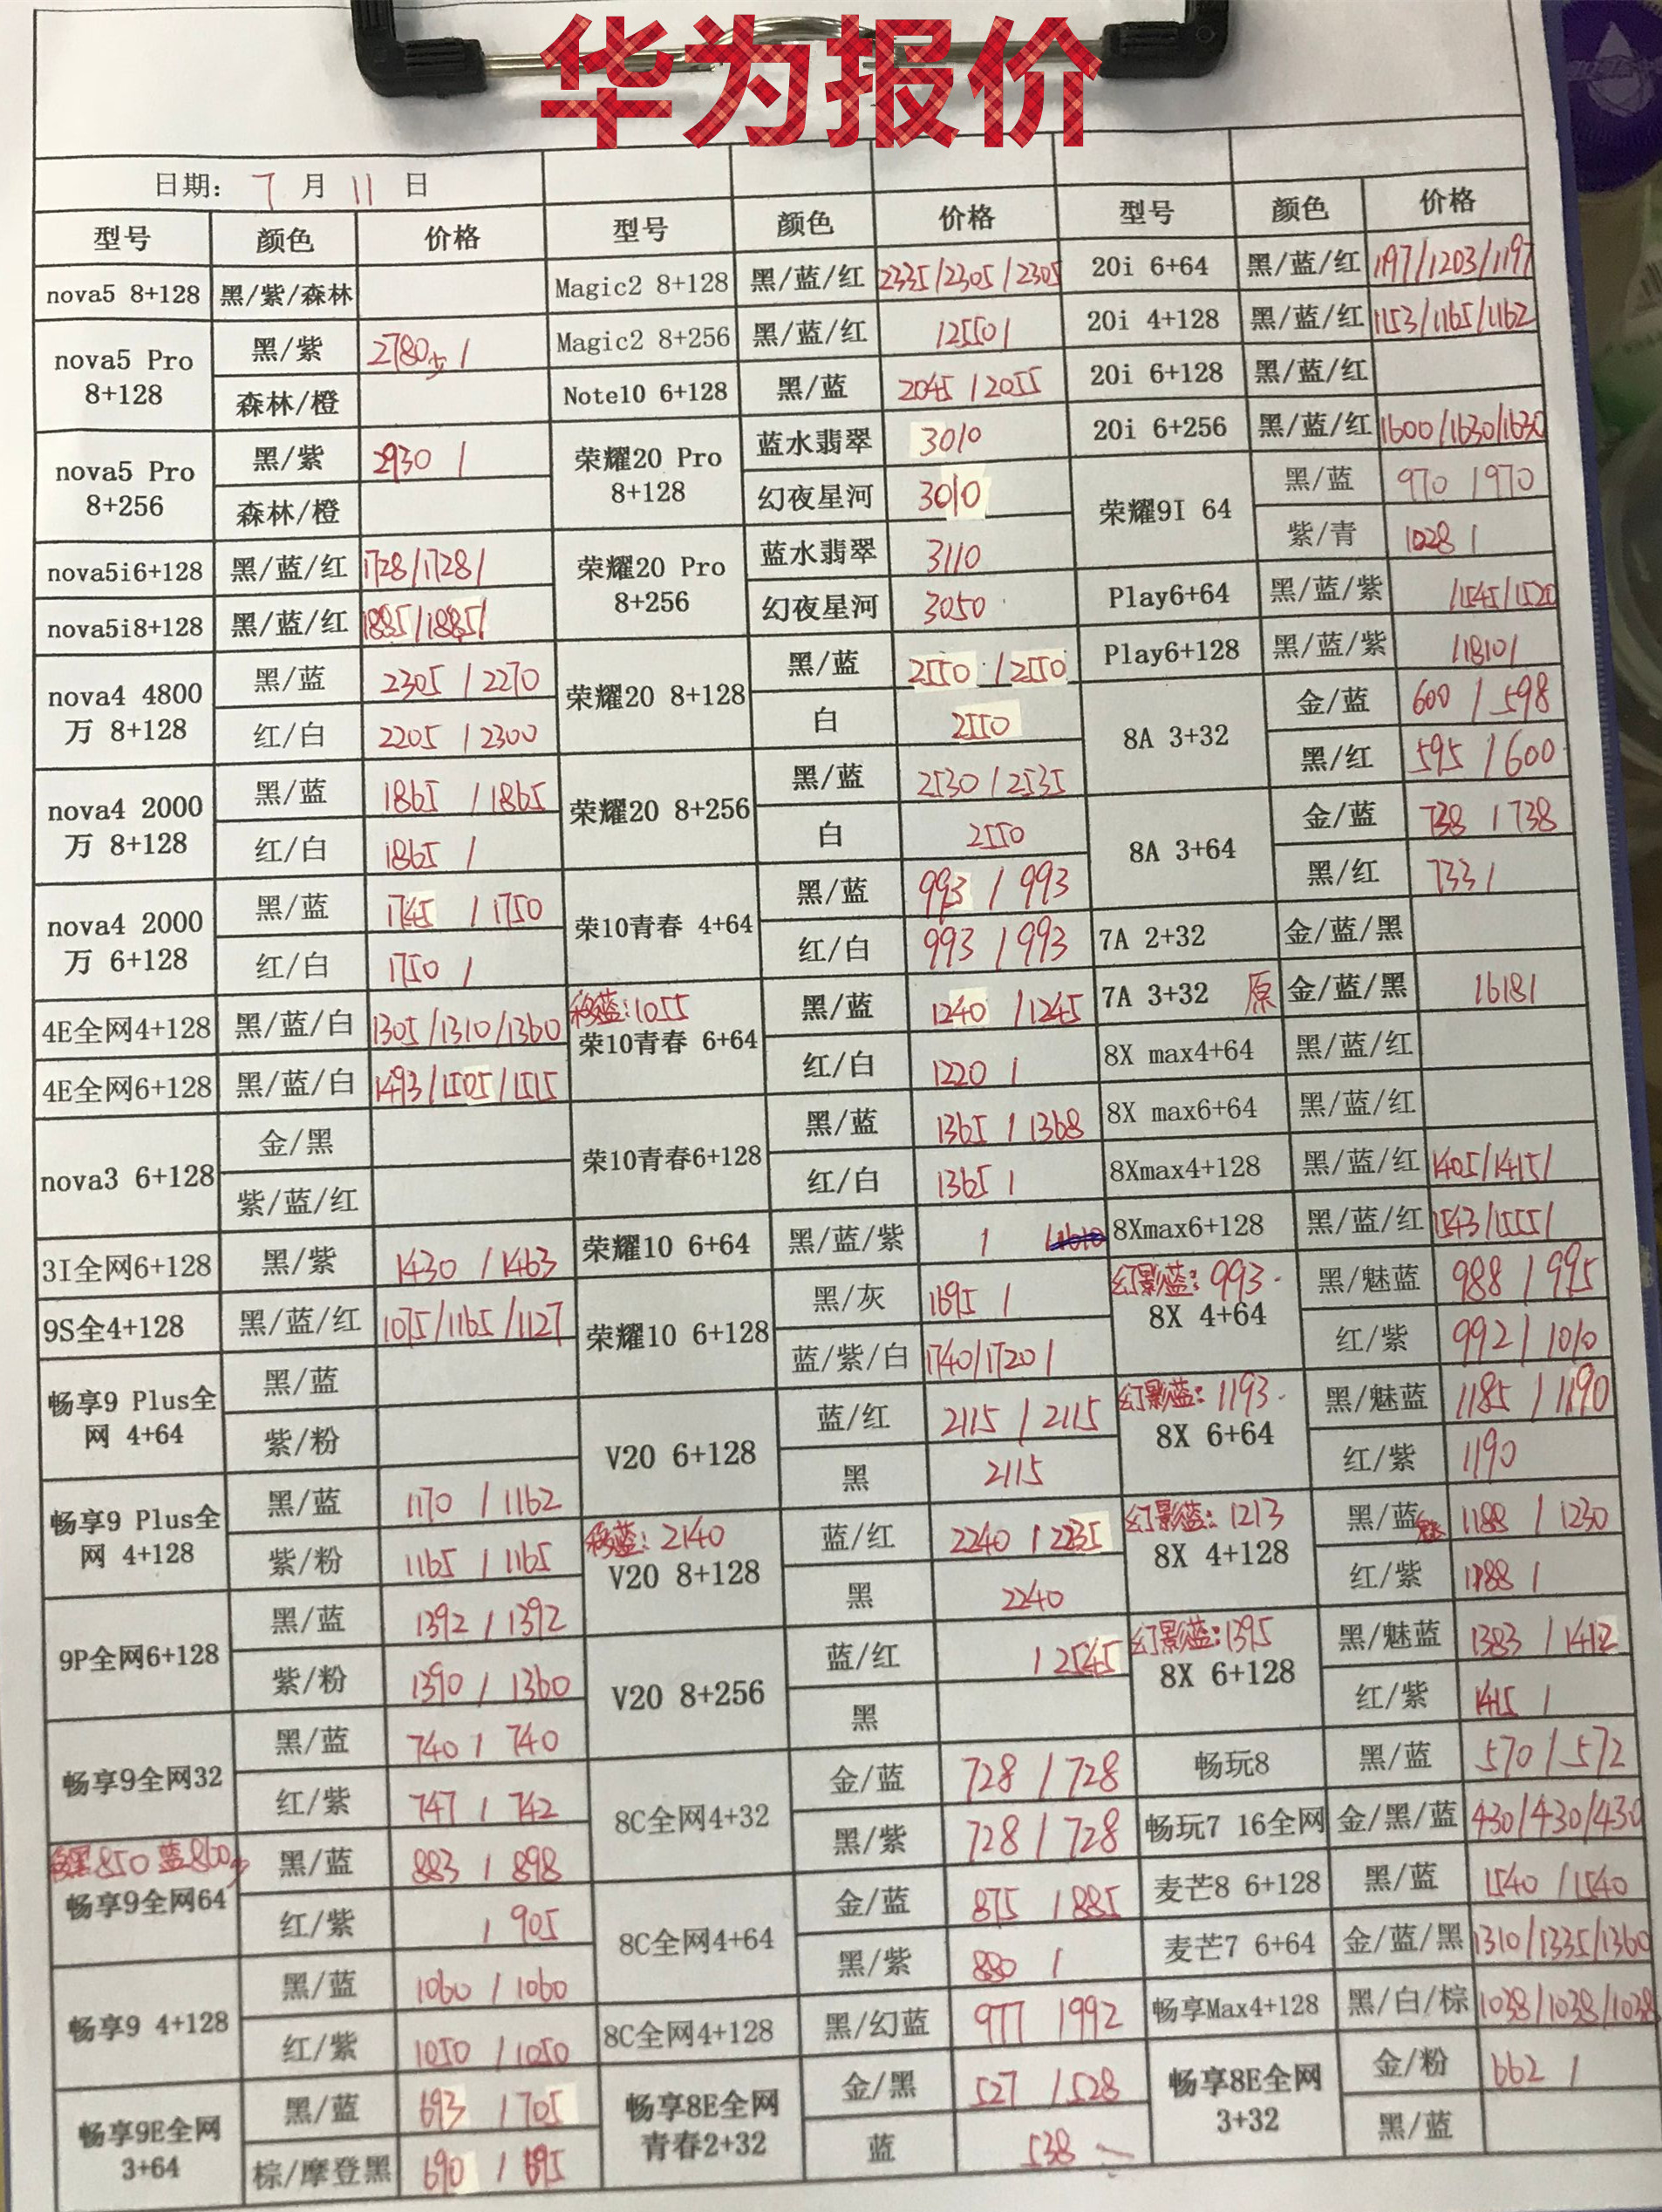 华为报价
日期: 7 月 11 日
型号 颜色 价格 型号 颜色 价格 型号 颜色 价格
nova5 8+128 黑/紫/森林
nova5 Pro 8+128 黑/紫 2780少 /
森林/橙
nova5 Pro 8+256 黑/紫 2930 /
森林/橙
nova5i6+128 黑/蓝/红 1728/1728/
nova5i8+128 黑/蓝/红 1885/1885/
nova4 4800万 8+128 黑/蓝 2305 / 2270
红/白 2205 / 2300
nova4 2000万 8+128 黑/蓝 1865 / 1865
红/白 1865 /
nova4 2000万 6+128 黑/蓝 1745 / 1750
红/白 1750 /
4E全网4+128 黑/蓝/白 1305/1310/1360
4E全网6+128 黑/蓝/白 1493/1505/1515
nova3 6+128 金/黑
紫/蓝/红
3I全网6+128 黑/紫 1430 / 1463
9S全4+128 黑/蓝/红 1075/1165/1127
畅享9 Plus全网 4+64 黑/蓝
紫/粉
畅享9 Plus全网 4+128 黑/蓝 1170 / 1162
紫/粉 1165 / 1165
9P全网6+128 黑/蓝 1392 / 1392
紫/粉 1390 / 1360
畅享9全网32 黑/蓝 740 / 740
红/紫 747 / 742
移黑850 蓝860少
畅享9全网64 黑/蓝 883 / 898
红/紫 / 905
畅享9 4+128 黑/蓝 1060 / 1060
红/紫 1050 / 1050
畅享9E全网 3+64 黑/蓝 693 / 705
棕/摩登黑 690 / 695
Magic2 8+128 黑/蓝/红 2335/2305/2305
Magic2 8+256 黑/蓝/红 /2550/
Note10 6+128 黑/蓝 2045 / 2055
荣耀20 Pro 8+128 蓝水翡翠 3010
幻夜星河 3010
荣耀20 Pro 8+256 蓝水翡翠 3110
幻夜星河 3050
荣耀20 8+128 黑/蓝 2150 / 2150
白 2150
荣耀20 8+256 黑/蓝 2530 / 2535
白 2550
荣10青春 4+64 黑/蓝 993 / 993
红/白 993 / 993
移蓝:1055
荣10青春 6+64 黑/蓝 1240 / 1245
红/白 1220 /
荣10青春6+128 黑/蓝 1365 / 1368
红/白 1365 /
荣耀10 6+64 黑/蓝/紫 / /
荣耀10 6+128 黑/灰 1695 /
蓝/紫/白 1740/1720/
V20 6+128 蓝/红 2115 / 2115
黑 2115
移蓝:2140
V20 8+128 蓝/红 2240 / 2235
黑 2240
V20 8+256 蓝/红 / 2545
黑
8C全网4+32 金/蓝 728 / 728
黑/紫 728 / 728
8C全网4+64 金/蓝 875 / 885
黑/紫 880 /
8C全网4+128 黑/幻蓝 977 / 992
畅享8E全网 青春2+32 金/黑 527 / 528
蓝 538
20i 6+64 黑/蓝/红 1197/1203/1197
20i 4+128 黑/蓝/红 1153/1165/1162
20i 6+128 黑/蓝/红
20i 6+256 黑/蓝/红 1600/1630/1630
荣耀9I 64 黑/蓝 970 / 970
紫/青 1028 /
Play6+64 黑/蓝/紫 /1545/1520
Play6+128 黑/蓝/紫 /1810/
8A 3+32 金/蓝 600 / 598
黑/红 595 / 600
8A 3+64 金/蓝 738 / 738
黑/红 733 /
7A 2+32 金/蓝/黑
7A 3+32 原 金/蓝/黑 /618/
8X max4+64 黑/蓝/红
8X max6+64 黑/蓝/红
8Xmax4+128 黑/蓝/红 1405/1415/
8Xmax6+128 黑/蓝/红 1543/1555/
幻影蓝:993
8X 4+64 黑/魅蓝 988 / 995
红/紫 992 / 1010
幻影蓝:1193
8X 6+64 黑/魅蓝 1185 / 1190
红/紫 1190
幻影蓝:1213
8X 4+128 黑/蓝魅 1188 / 1230
红/紫 1188 /
幻影蓝:1395
8X 6+128 黑/魅蓝 1383 / 1412
红/紫 1415 /
畅玩8 黑/蓝 570 / 572
畅玩7 16全网 金/黑/蓝 430/430/430
麦芒8 6+128 黑/蓝 1540 / 1540
麦芒7 6+64 金/蓝/黑 1310/1335/1360
畅享Max4+128 黑/白/棕 1038/1038/1038
畅享8E全网 3+32 金/粉 662 /
黑/蓝